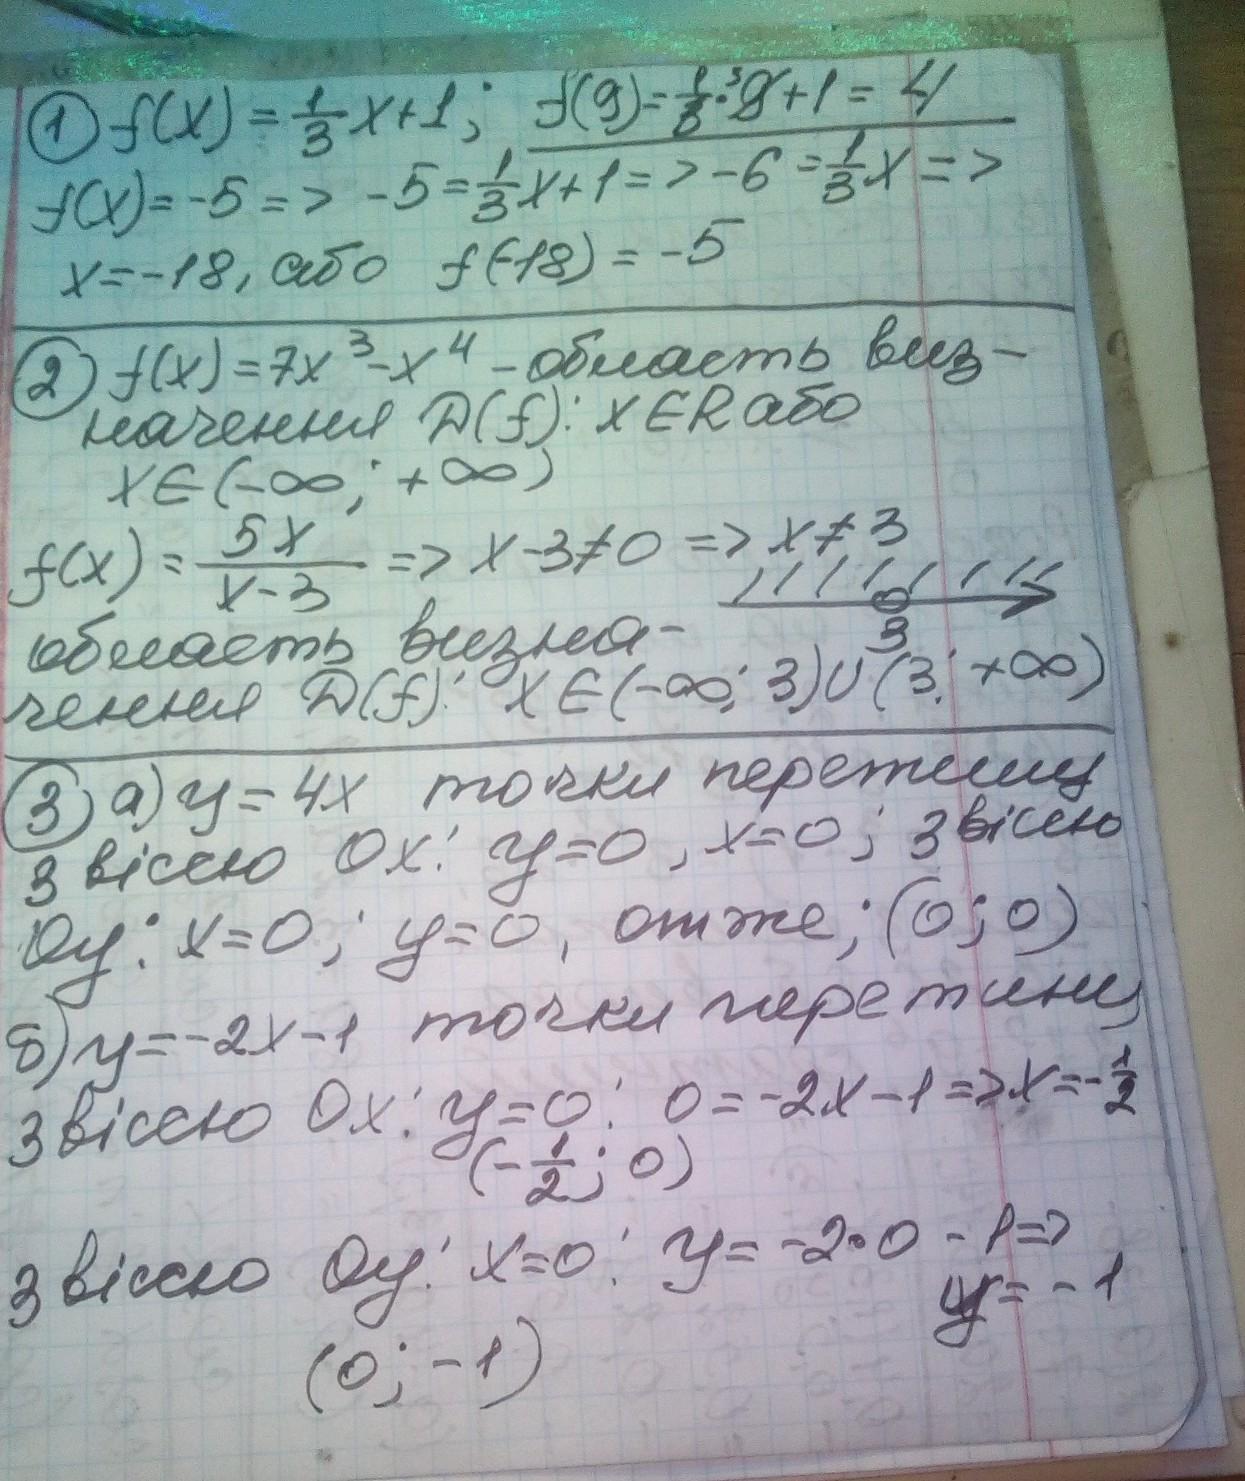 ① f(x) = 1/3 x+1; f(9) = 1/3 · 9 + 1 = 4
f(x) = -5 => -5 = 1/3 x+1 => -6 = 1/3 x =>
x = -18, або f(-18) = -5
② f(x) = 7x³ - x⁴ - область виз-
начення D(f): x∈R або
x∈(-∞; +∞)
f(x) = 5x/(x-3) => x-3≠0 => x≠3
3
область визна-
чення D(f): x∈(-∞; 3)∪(3; +∞)
③ а) y = 4x точки перетину
з віссю Ox: y=0, x=0; з віссю
Oy: x=0; y=0, отже; (0; 0)
б) y = -2x-1 точки перетину
з віссю Ox: y=0: 0=-2x-1 => x=-1/2
(-1/2; 0)
з віссю Oy: x=0: y=-2·0 -1 =>
y = -1
(0; -1)